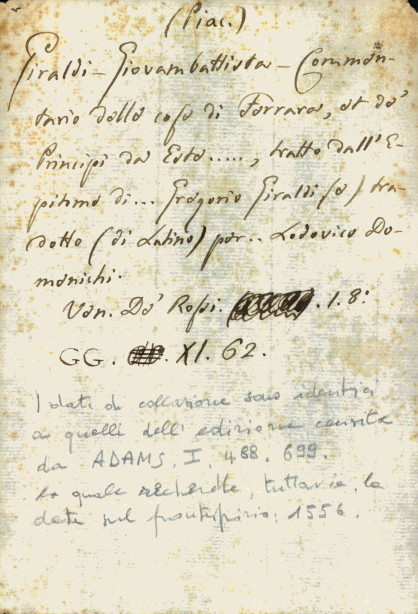 (Piac.)
Giraldi - Giovambattista - Commen-
tario delle cose di Ferrara, et de'
Principi da Este....., tratto dall' E-
pitome di... Gregorio Giraldi (e) tra-
dotto (di Latino) per.. Lodovico Do-
menichi.
Ven. De' Rossi. . 1. 8:
GG. . XI. 62.
I dati di collazione sono identici
a quelli dell' edizione censita
da ADAMS, I, 488. 699.
la quale recherebbe, tuttavia, la
data sul frontespizio: 1556.